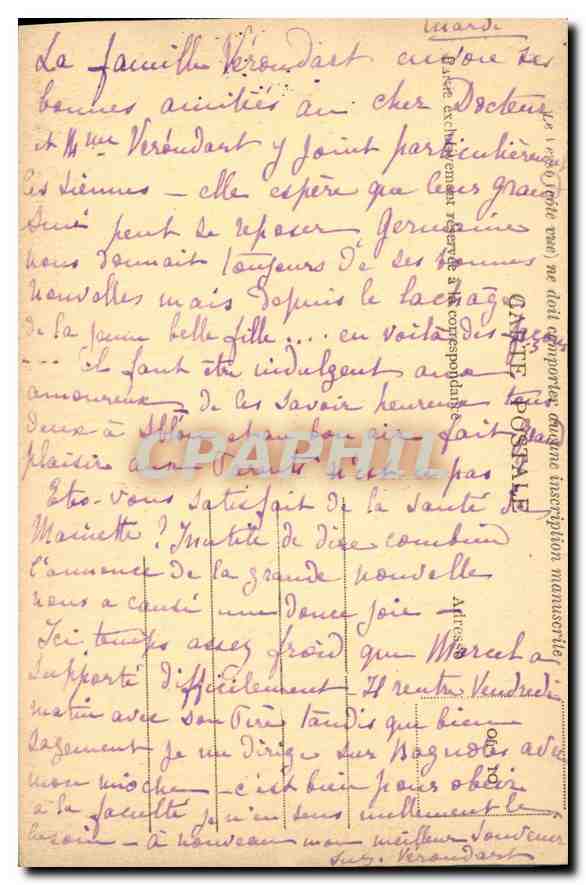 Mardi
La famille Vérondart envoie ses
bonnes amitiés au cher Docteur
et Mme Vérondart y joint particulièrem
les siennes – elle espère que leur grand
ami peut se reposer Germaine
nous donnait toujours de ses bonnes
nouvelles mais depuis le laçage
de la jeune belle fille .... en voilà des
... il faut être indulgent aux
amoureux de les savoir heureux tous
deux à et au bon air fait grand
plaisir aux n'est ce pas
Etes-vous satisfait de la santé de
Mainette ? Inutile de dire combien
l'annonce de la grande nouvelle
nous a causé une douce joie –
Ici temps assez froid que Marcel a
supporté difficilement – Il rentre Vendredi
matin avec son Père tandis que bien
sagement je me dirige sur Bagnoles avec
mon mioche – c'est bien pour obéir
à la faculté je n'en sens nullement le
besoin – à nouveau mon meilleur souvenir
Suz. Vérondart
CARTE POSTALE
Partie exclusivement réservée à la correspondance
Le (côté vue) ne doit comporter aucune inscription manuscrite
Adresse
CPARAMA